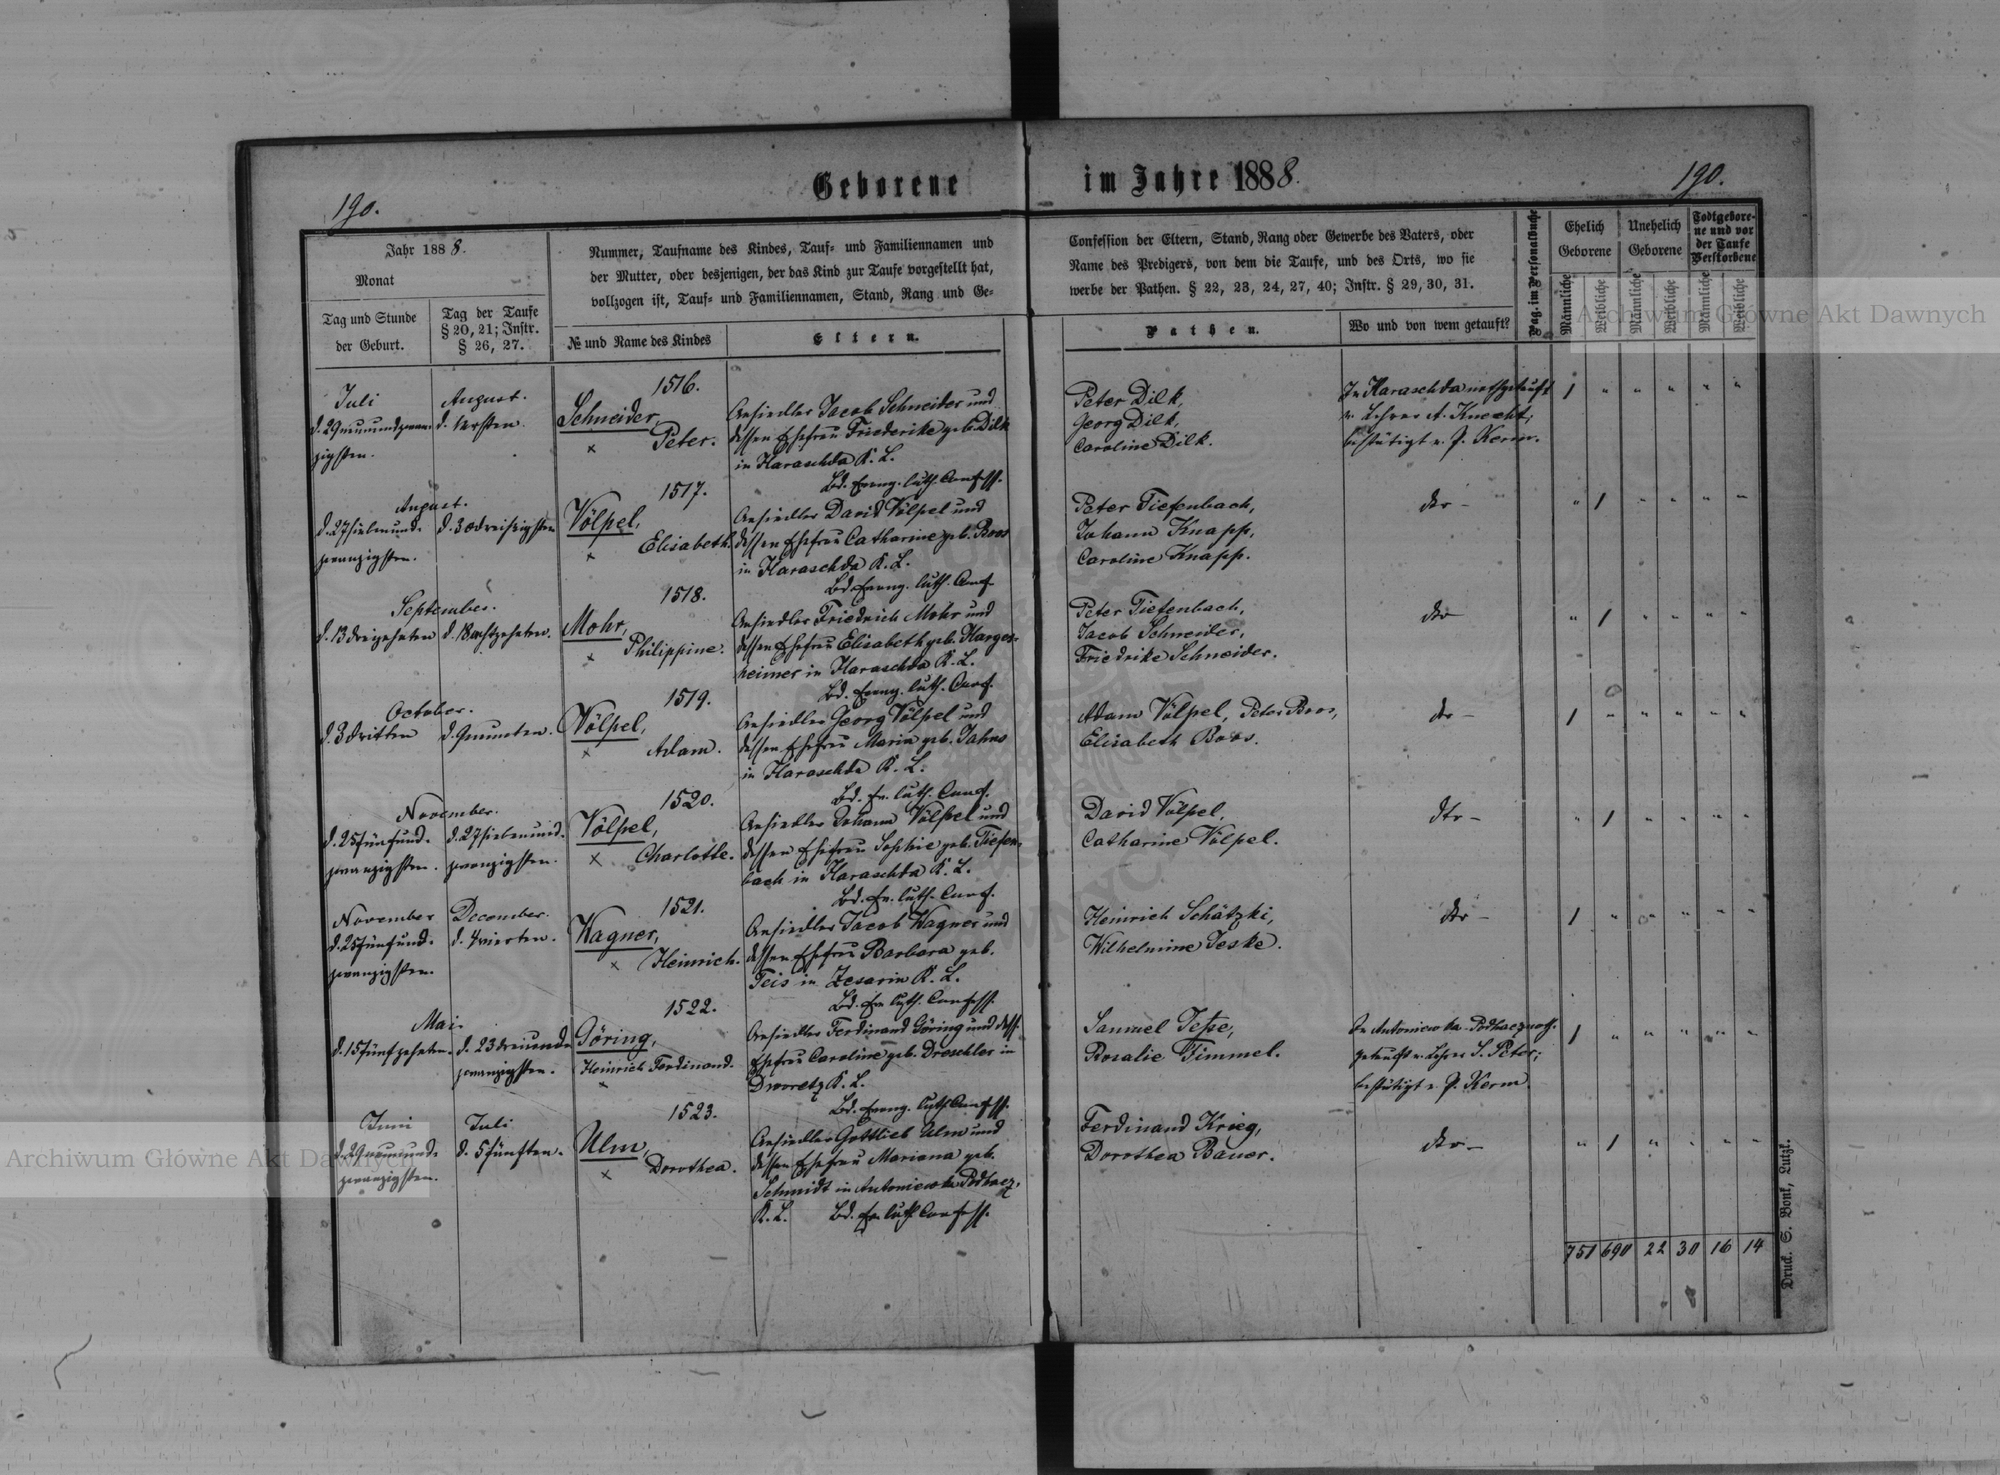 Geborene im Jahre 1888.
190.
190.
Jahr 1888.
Monat
Tag und Stunde
der Geburt.
Tag der Taufe
§ 20, 21; Instr.
§ 26, 27.
Nummer, Taufname des Kindes, Tauf- und Familiennamen und
der Mutter, oder desjenigen, der das Kind zur Taufe vorgestellt hat,
vollzogen ist, Tauf- und Familiennamen, Stand, Rang und Ge-
№ und Name des Kindes
Eltern.
Confession der Eltern, Stand, Rang oder Gewerbe des Vaters, oder
Name des Predigers, von dem die Taufe, und des Orts, wo sie
werbe der Pathen. § 22, 23, 24, 27, 40; Instr. § 29, 30, 31.
Pathen.
Wo und von wem getauft?
Pag. im Personalbuche
Ehelich
Geborene
Unehelich
Geborene
Todtgebore-
ne und vor
der Taufe
Verstorbene
Männliche
Weibliche
Männliche
Weibliche
Männliche
Weibliche
Juli
d. 29 neunundzwan-
zigsten.
August.
d. 1 ersten.
1516.
Schneider,
× Peter.
Ansiedler Jacob Schneider und
dessen Ehefrau Friederike geb. Dilk
in Haraschda K. L.
Bd. Evang. luth. Confess.
Peter Dilk,
Georg Dilk,
Caroline Dilk.
In Haraschda nothgetauft
v. Lehrer A. Knecht;
bestätigt v. P. Kerm.
1 " " " " "
August.
d. 27 siebenund-
zwanzigsten.
d. 30 dreißigsten
1517.
Völpel,
× Elisabeth.
Ansiedler David Völpel und
dessen Ehefrau Catharine geb. Boos
in Haraschda K. L.
Bd. Evang. luth. Conf.
Peter Tiefenbach,
Johann Knapp,
Caroline Knapp.
dto –
" 1 " " " "
September.
d. 13 dreizehnten
d. 18 achtzehnten.
1518.
Mohr,
× Philippine.
Ansiedler Friedrich Mohr und
dessen Ehefrau Elisabeth geb. Harges-
heimer in Haraschda K. L.
Bd. Evang. luth. Conf.
Peter Tiefenbach,
Jacob Schneider,
Friedrike Schneider.
dto
" 1 " " " "
October.
d. 3 dritten
d. 9 neunten.
1519.
Völpel,
× Adam.
Ansiedler Georg Völpel und
dessen Ehefrau Maria geb. Jahns
in Haraschda K. L.
Bd. Ev. luth. Conf.
Adam Völpel, Peter Boos,
Elisabeth Boos.
dto –
1 " " " " "
November.
d. 25 fünfund-
zwanzigsten.
d. 27 siebenund-
zwanzigsten.
1520.
Völpel,
× Charlotte.
Ansiedler Johann Völpel und
dessen Ehefrau Sophie geb. Tiefen-
bach in Haraschda K. L.
Bd. Ev. luth. Conf.
David Völpel,
Catharine Völpel.
dto –
" 1 " " " "
November
d. 25 fünfund-
zwanzigsten.
December.
d. 4 vierten.
1521.
Wagner,
× Heinrich.
Ansiedler Jacob Wagner und
dessen Ehefrau Barbara geb.
Teis in Zesarin K. L.
Bd. Ev. luth. Confess.
Heinrich Schätzki,
Wilhelmine Jeske.
dto –
1 " " " " "
Mai.
d. 15 fünfzehnten.
d. 23 dreiund-
zwanzigsten.
1522.
Göring,
Heinrich Ferdinand.
×
Ansiedler Ferdinand Göring und dess.
Ehefrau Caroline geb. Dreschler in
Dworetz K. L.
Bd. Evang. luth. Confess.
Samuel Jesse,
Rosalie Timmel.
In Antoniewka-Podhaez noth-
getauft v. Lehrer S. Peter;
bestätigt v. P. Kerm
1 " " " " "
Juni
d. 29 neunund-
zwanzigsten.
Juli
d. 5 fünften.
1523.
Ulm,
× Dorothea.
Ansiedler Gottlieb Ulm und
dessen Ehefrau Mariana geb.
Schmidt in Antoniewka Podhaez,
K. L. Bd. Ev. luth. Confess.
Ferdinand Krieg,
Dorothea Bauer.
dto –
" 1 " " " "
751 690 22 30 16 14
Druck. S. Bonk, Lutzk.
Archiwum Główne Akt Dawnych
Archiwum Główne Akt Dawnych